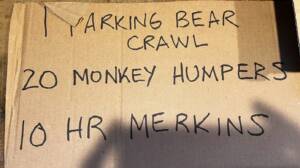 1 PARKING BEAR
CRAWL
20 MONKEY HUMPERS
10 HR MERKINS